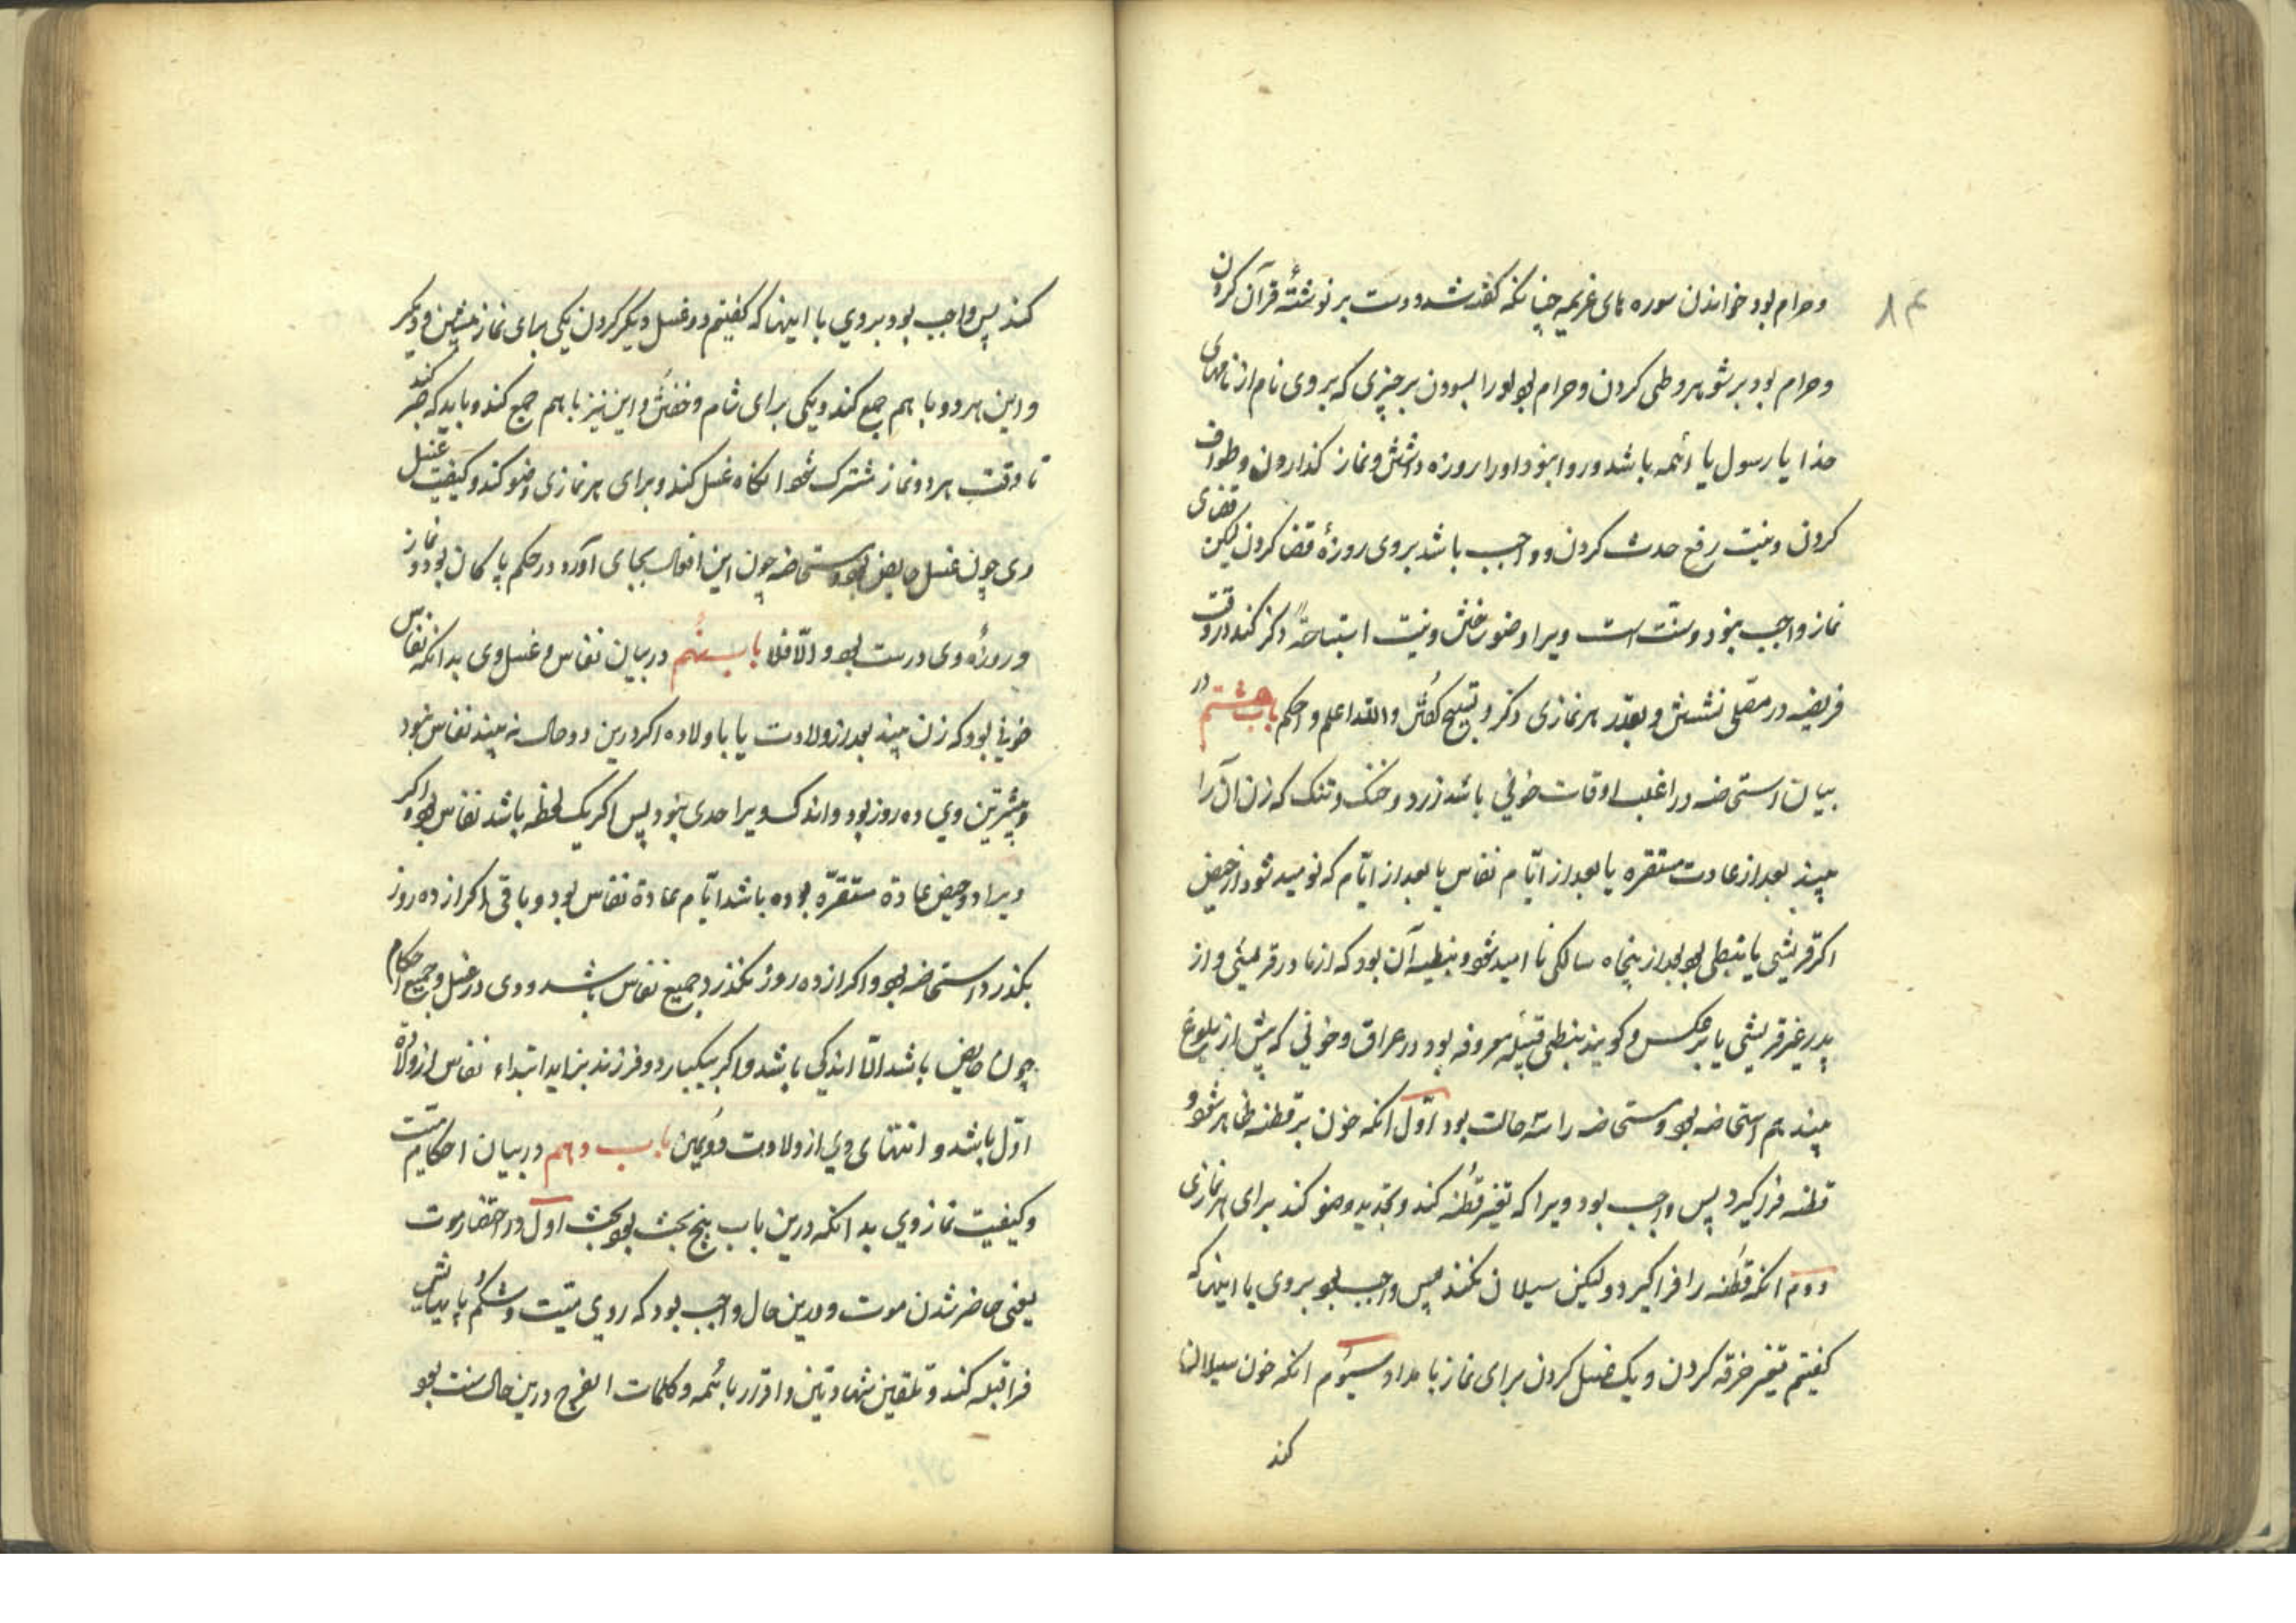 ۸۴
وحرام بود خواندن سوره های عزیمه چنانکه گفته شد و دست بر نوشتهٔ قرآن کردن
وحرام بود بر شوهر وطی کردن وحرام بود او را بسودن بر چیزی که بروی نام از نامهای
خدا یا رسول یا ائمه باشد و روا نبود او را روزه داشتن و نماز گذاردن و طواف
کردن ونیت رفع حدث کردن و واجب باشد بروی روزهٔ قضا کردن لیکن قضای
نماز واجب نبود وسنت است ویرا وضو ساختن ونیت استباحة ذکر کند در وقت
فریضه در مصلی نشستن و بقدر هر نمازی ذکر و تسبیح گفتن والله اعلم و احکم باب هشتم در
بیان استحاضه در اغلب اوقات خونی باشد زرد و خنک و تنک که زن آن را
بیند بعد از عادت مستقره یا بعد از ایام نفاس یا بعد از ایام که نومید شود از حیض
اکر قریشی یا نبطی بود بعد از پنجاه سالگی نا امید شود ونبطیه آن بود که از مادر قریشی و از
پدر غیر قریشی یا برعکس و گویند نبطی قبیله معروفه بود در عراق و خونی که پیش از بلوغ
بیند هم استحاضه بود ومستحاضه را سه حالت بود اوّل انکه خون بر قطنه ظاهر شود و
قطنه فرا گیرد پس واجب بود ویرا که تغیر قُطنه کند و تجدید وضو کند برای هر نمازی
دوم انکه قُطنه را فرا گیرد ولیکن سیلان نکند پس واجب بود بروی با اینها که
گفتیم تغیر خرقه کردن و یک غسل کردن برای نماز بامداد سیوم انکه خون سیلان
کند
کند پس واجب بود بروی با اینها که گفتیم دو غسل دیگر کردن یکی برای نماز پیشین و دیگر
و این هر دو با هم جمع کند و یکی برای شام و خفتن و این نیز با هم جمع کند و باید که صبر کند
تا وقت هر دو نماز مشترک شود انگاه غسل کند و برای هر نمازی وضو کند و کیفیت غسل
وی چون غسل حایض بود ومستحاضه چون این افعال بجای آورد در حکم پاکان بود و نماز
و روزهٔ وی درست بود و الّا فلا باب نهم در بیان نفاس و غسل وی بدانکه نفاس
خونی بود که زن بیند بعد از ولادت یا با ولاده اکر درین دو حال نه بیند نفاس نبود
و بیشترین وی ده روز بود و اندک ویرا حدی نبود پس اکر یک لحظه باشد نفاس بود و اکر
ویرا در حیض عادة مستقرّه بوده باشد ایّام عادة نفاس بود و باقی اکر از ده روز
بگذرد استحاضه بود و اکر از ده روز نگذرد جمیع نفاس باشد و وی در غسل و جمیع احکام
چون حایض باشد الّا اندکی باشد و اکر بیکبار دو فرزند بزاید ابتداء نفاس از ولادة
اوّل باشد و انتهای وی از ولادت دویُمین باب دهم در بیان احکام میّت
و کیفیت نماز وی بدانکه درین باب پنج بحث بود بحث اول در احتضار موت
یعنی حاضر شدن موت و درین حال واجب بود که روی میّت و شکم پا بهایش
فرا قبله کند و تلقین شهادتین و اقرار بائمه و کلمات الفرج درین حال سنت بود